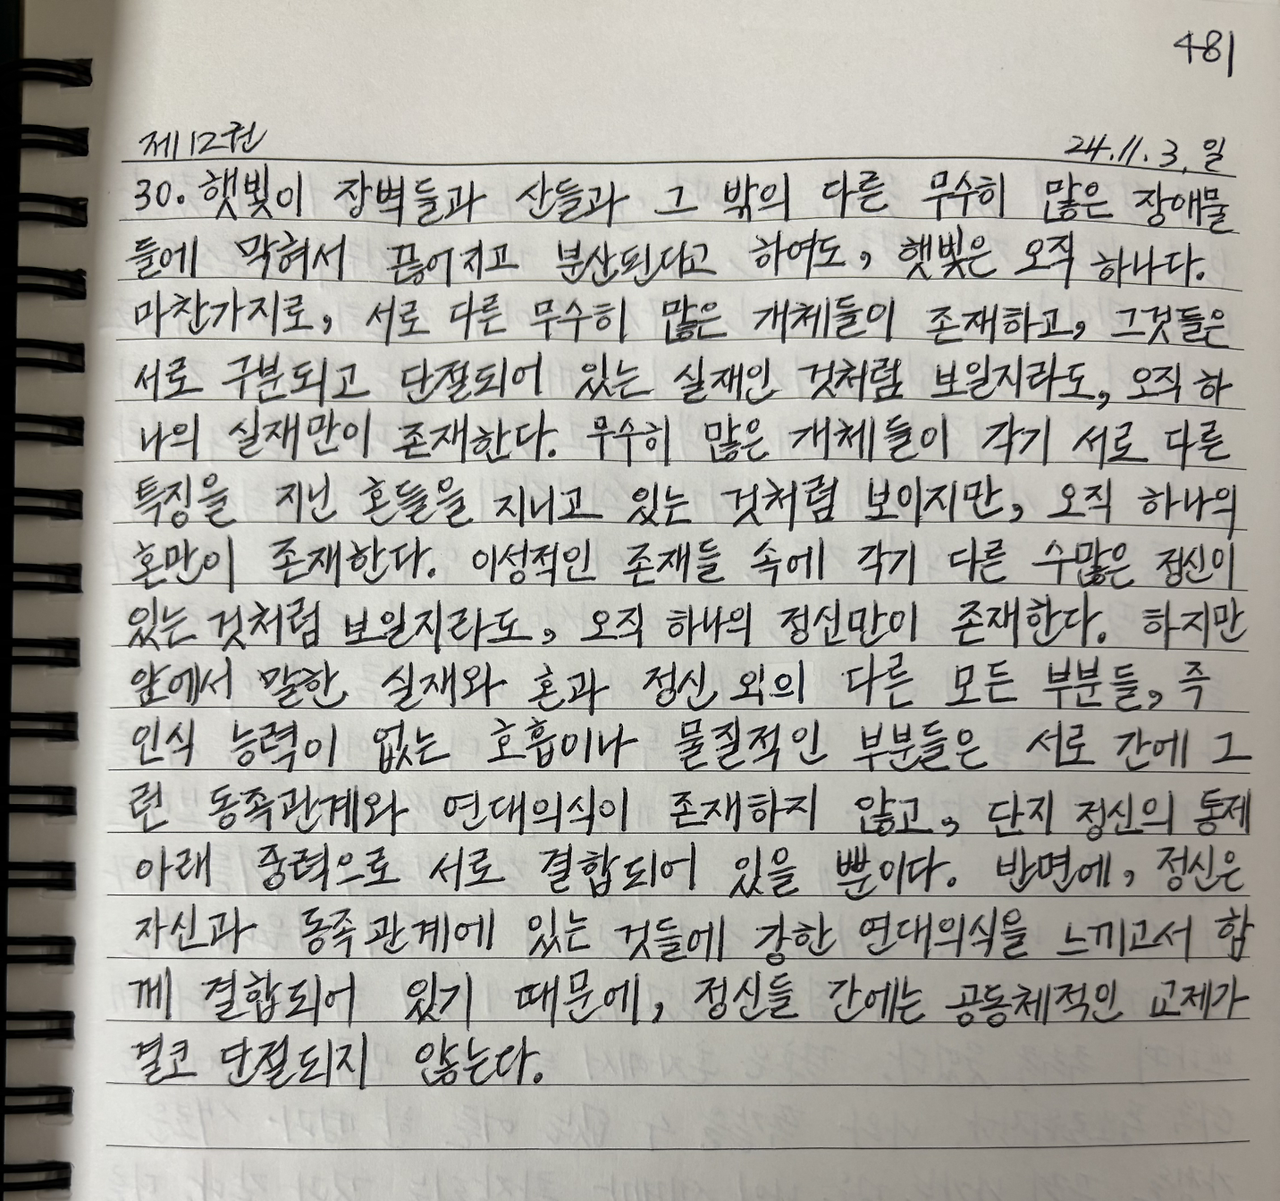 481
제12권 24.11.3.일
30. 햇빛이 장벽들과 산들과 그 밖의 다른 무수히 많은 장애물
들에 막혀서 끊어지고 분산된다고 하여도, 햇빛은 오직 하나다.
마찬가지로, 서로 다른 무수히 많은 개체들이 존재하고, 그것들은
서로 구분되고 단절되어 있는 실재인 것처럼 보일지라도, 오직 하
나의 실재만이 존재한다. 무수히 많은 개체들이 각기 서로 다른
특징을 지닌 혼들을 지니고 있는 것처럼 보이지만, 오직 하나의
혼만이 존재한다. 이성적인 존재들 속에 각기 다른 수많은 정신이
있는 것처럼 보일지라도, 오직 하나의 정신만이 존재한다. 하지만
앞에서 말한 실재와 혼과 정신 외의 다른 모든 부분들, 즉
인식 능력이 없는 호흡이나 물질적인 부분들은 서로 간에 그
런 동족관계와 연대의식이 존재하지 않고, 단지 정신의 통제
아래 중력으로 서로 결합되어 있을 뿐이다. 반면에, 정신은
자신과 동족관계에 있는 것들에 강한 연대의식을 느끼고서 함
께 결합되어 있기 때문에, 정신들 간에는 공동체적인 교제가
결코 단절되지 않는다.